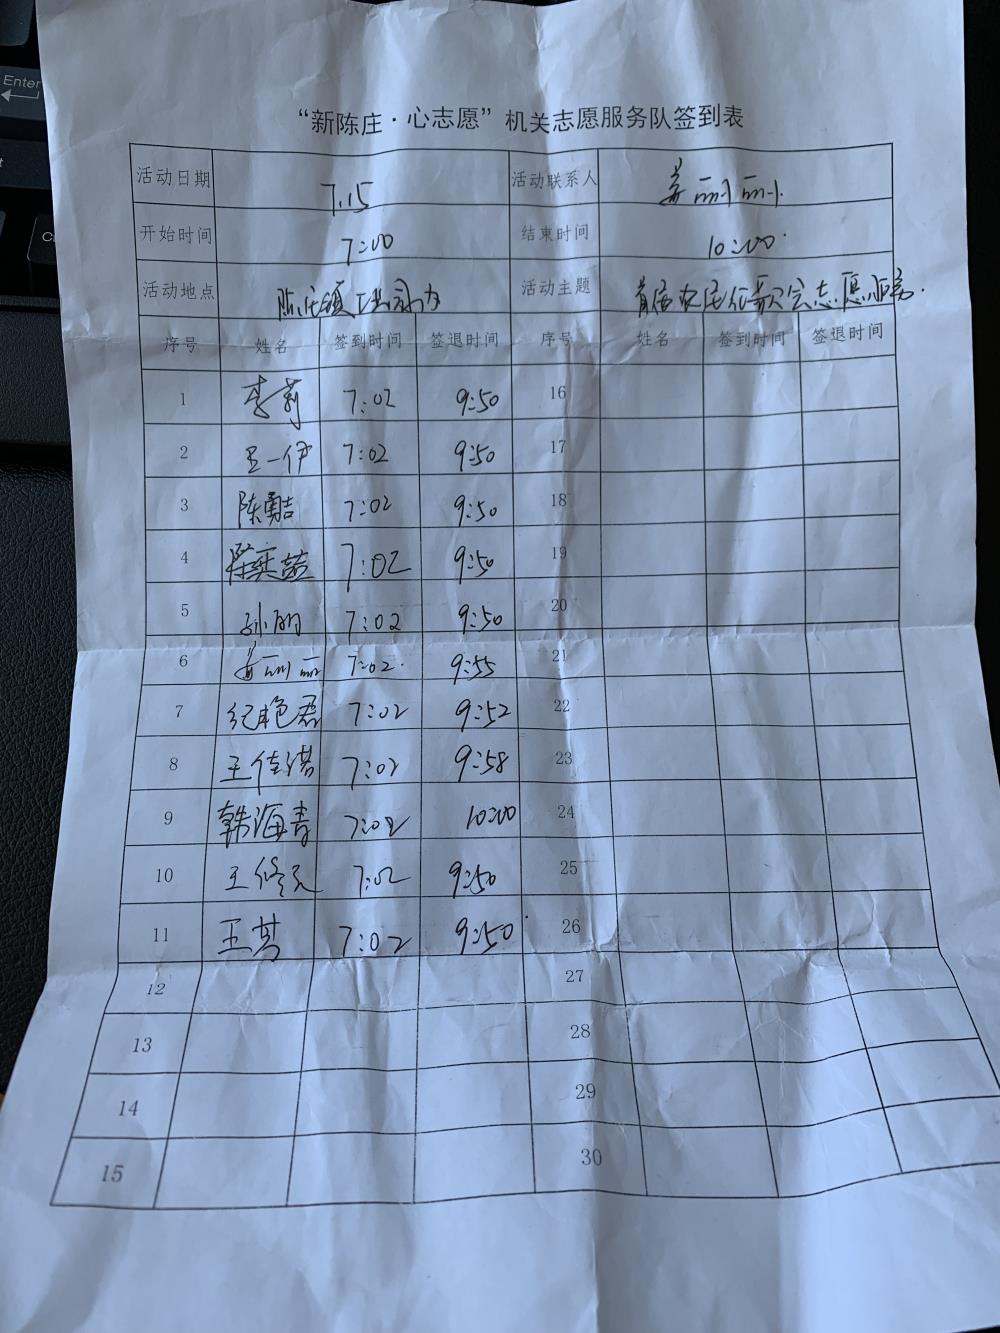 Enter
“新陈庄·心志愿”机关志愿服务队签到表
活动日期 7.15 活动联系人 姜丽丽
开始时间 7:00 结束时间 10:00
活动地点 陈庄镇 活动主题 首届农民 歌会志愿服务
序号 姓名 签到时间 签退时间 序号 姓名 签到时间 签退时间
1 李莉 7:02 9:50 16
2 王一伊 7:02 9:50 17
3 陈勇喆 7:02 9:50 18
4 7:02 9:50 19
5 孙明 7:02 9:50 20
6 姜丽丽 7:02 9:55 21
7 纪艳君 7:02 9:52 22
8 王佳诺 7:02 9:58 23
9 韩海青 7:02 10:00 24
10 王修 7:02 9:50 25
11 王其 7:02 9:50 26
12 27
13 28
14 29
15 30